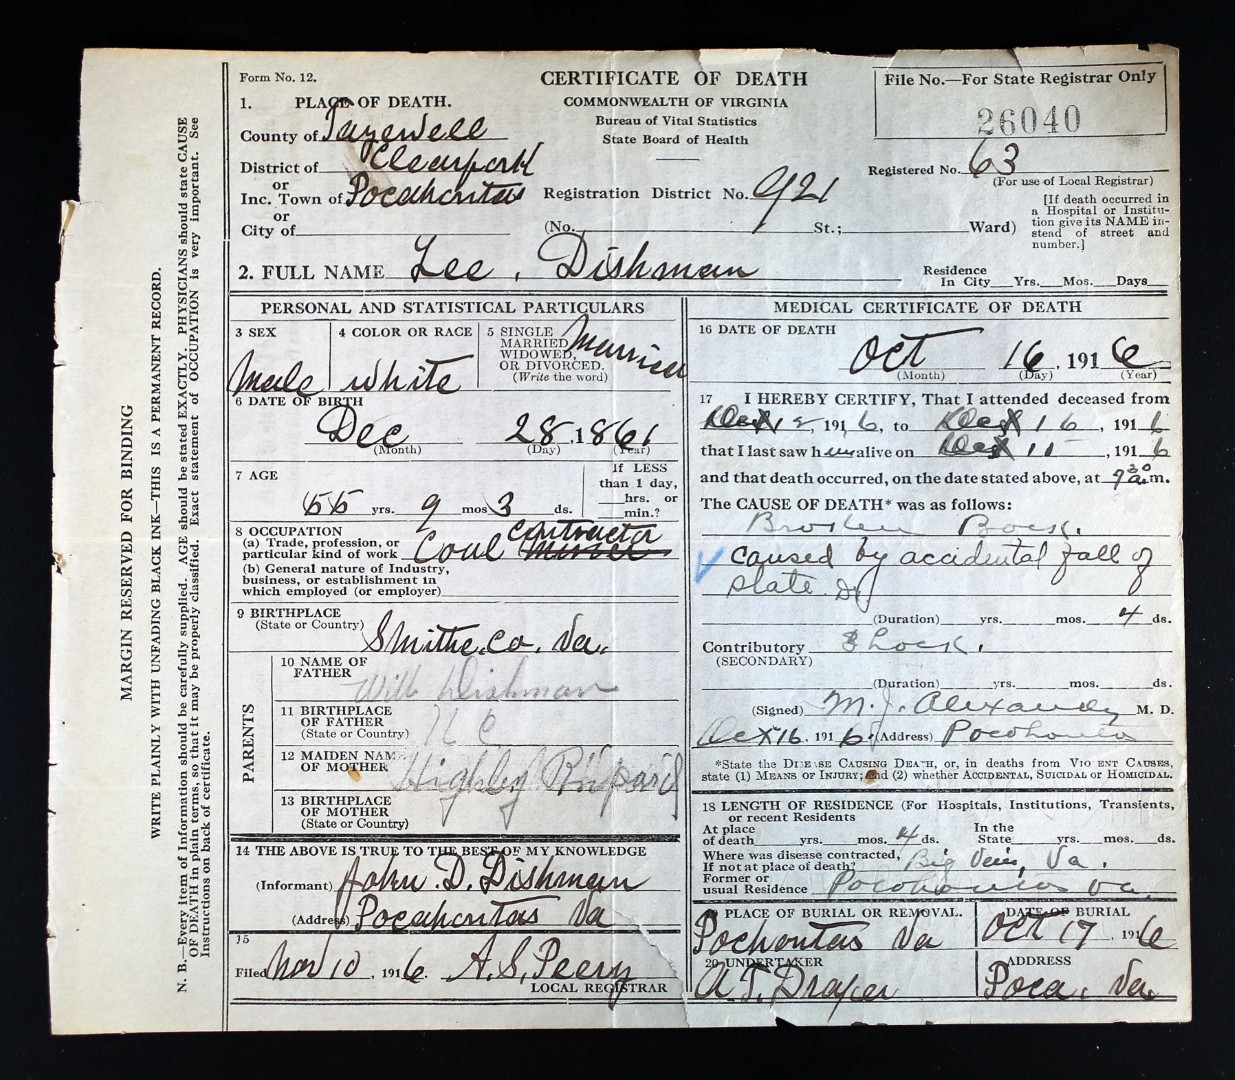 Form No. 12.
CERTIFICATE OF DEATH
COMMONWEALTH OF VIRGINIA
Bureau of Vital Statistics
State Board of Health
File No.—For State Registrar Only
26040
1. PLACE OF DEATH.
County of Tazewell
District of Clearfork
or
Inc. Town of Pocahontas
or
City of
Registration District No. 921
Registered No. 63
(For use of Local Registrar)
(No. St.; Ward)
[If death occurred in
a Hospital or Institu-
tion give its NAME in-
stead of street and
number.]
2. FULL NAME Lee. Dishman
Residence
In City Yrs. Mos. Days
PERSONAL AND STATISTICAL PARTICULARS
3 SEX
Male
4 COLOR OR RACE
White
5 SINGLE
MARRIED
WIDOWED,
OR DIVORCED.
(Write the word)
Married
6 DATE OF BIRTH
Dec 28, 1861
(Month) (Day) (Year)
7 AGE
55 yrs. 9 mos 3 ds.
If LESS
than 1 day,
hrs. or
min.?
8 OCCUPATION
(a) Trade, profession, or
particular kind of work Coal Contractor
(b) General nature of Industry,
business, or establishment in
which employed (or employer)
9 BIRTHPLACE
(State or Country) Smithe. Co. Va.
PARENTS
10 NAME OF
FATHER
Will Dishman
11 BIRTHPLACE
OF FATHER
(State or Country) N C
12 MAIDEN NAME
OF MOTHER
13 BIRTHPLACE
OF MOTHER
(State or Country)
14 THE ABOVE IS TRUE TO THE BEST OF MY KNOWLEDGE
(Informant) John. D. Dishman
(Address) Pocahontas Va
15
Filed Nov 10, 1916. A. S. Peery
LOCAL REGISTRAR
MEDICAL CERTIFICATE OF DEATH
16 DATE OF DEATH
Oct 16, 1916
(Month) (Day) (Year)
17 I HEREBY CERTIFY, That I attended deceased from
1916, to 16, 1916
that I last saw him alive on 1916
and that death occurred, on the date stated above, at 9 30 a.m.
The CAUSE OF DEATH* was as follows:
Broken Back.
caused by accidental fall of
slate
(Duration) yrs. mos. 4 ds.
Contributory Shock.
(SECONDARY)
(Duration) yrs. mos. ds.
(Signed) M. J. Alexander M. D.
16, 1916 (Address) Pocohontas
*State the DISEASE CAUSING DEATH, or, in deaths from VIOLENT CAUSES,
state (1) MEANS OF INJURY; and (2) whether ACCIDENTAL, SUICIDAL or HOMICIDAL.
18 LENGTH OF RESIDENCE (For Hospitals, Institutions, Transients,
or recent Residents
At place
of death yrs. mos. 4 ds.
In the
State yrs. mos. ds.
Where was disease contracted,
If not at place of death? Big Vein, Va.
Former or
usual Residence Pocohontas Va.
19 PLACE OF BURIAL OR REMOVAL.
Pochontas Va
DATE OF BURIAL
Oct 17, 1916
20 UNDERTAKER
A. T. Draper
ADDRESS
Poca. Va.
MARGIN RESERVED FOR BINDING
WRITE PLAINLY WITH UNFADING BLACK INK—THIS IS A PERMANENT RECORD.
N. B.—Every item of Information should be carefully supplied. AGE should be stated EXACTLY. PHYSICIANS should state CAUSE
OF DEATH in plain terms, so that it may be properly classified. Exact statement of OCCUPATION is very important. See
Instructions on back of certificate.